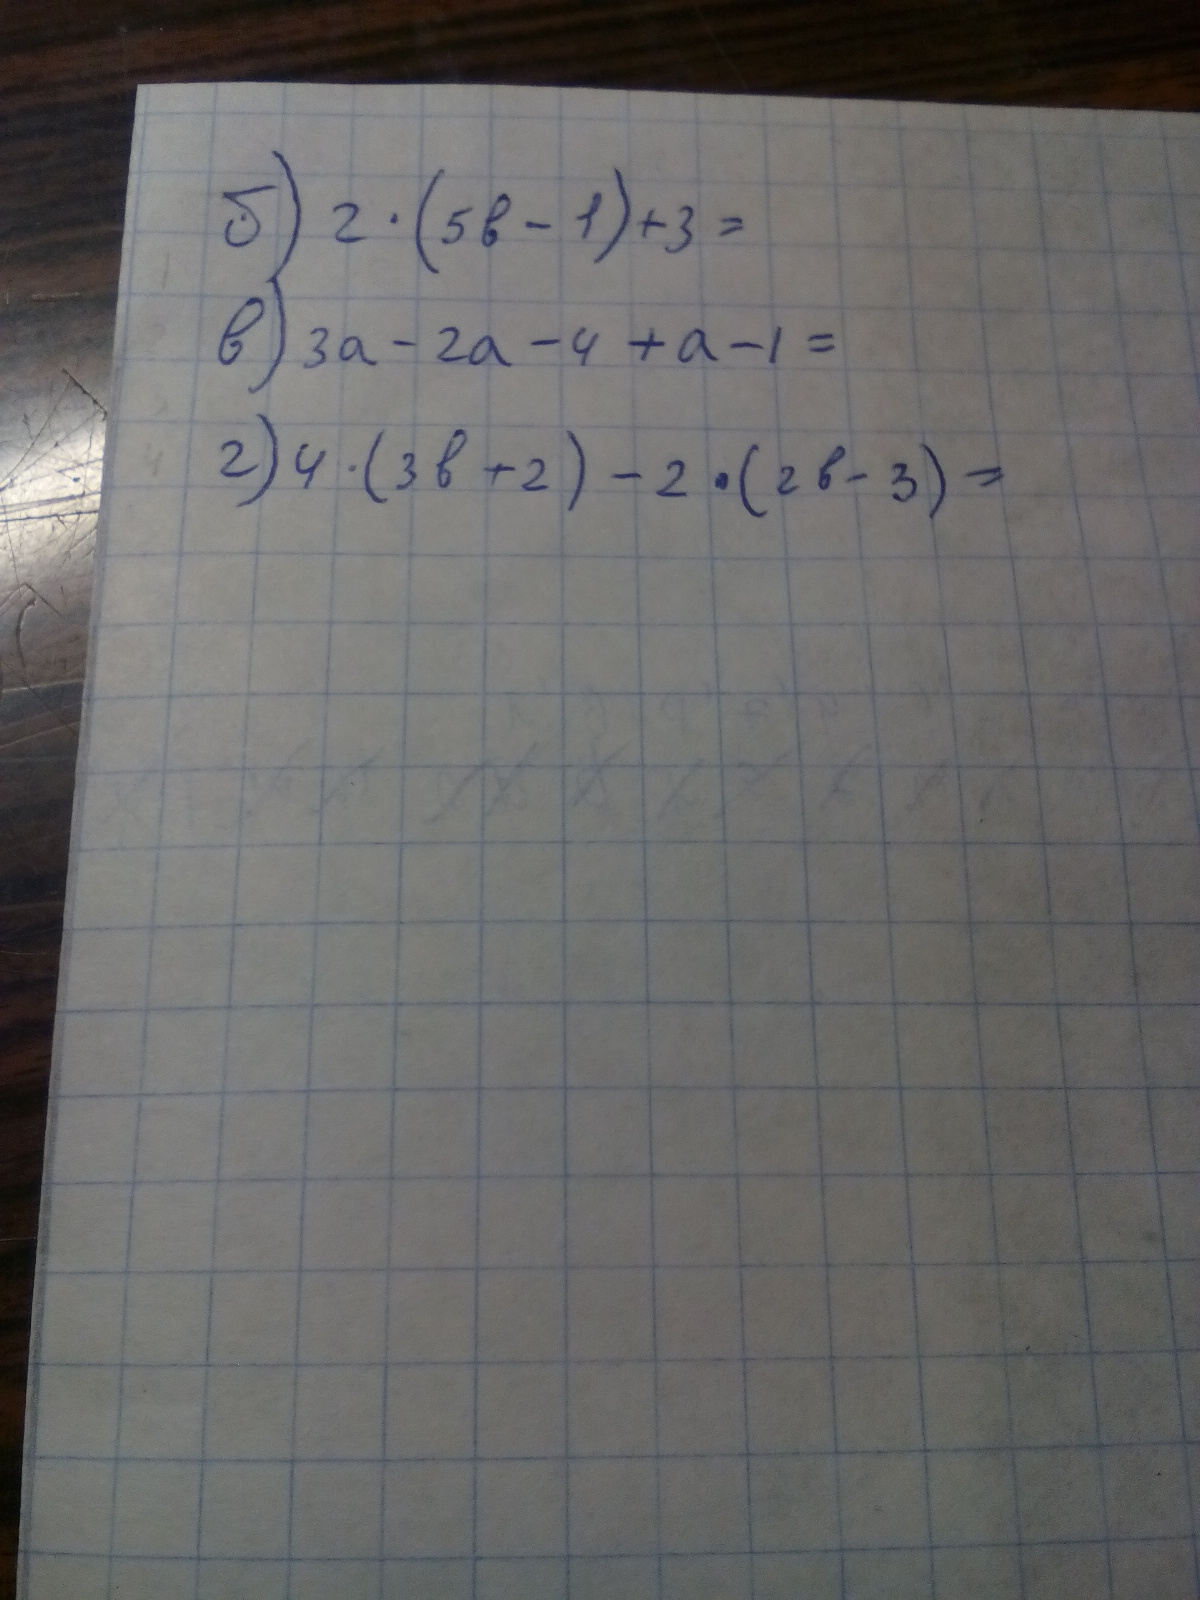 б) 2·(5в-1)+3=
в) 3а-2а-4+а-1=
г) 4·(3в+2)-2·(2в-3)=